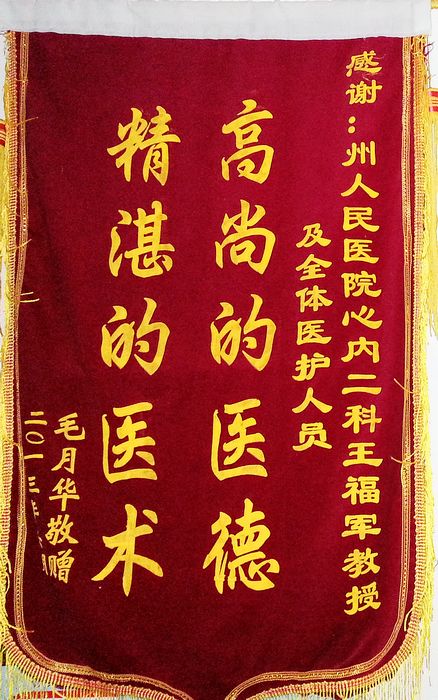 感谢：州人民医院心内二科王福军教授
及全体医护人员
高尚的医德
精湛的医术
毛月华敬赠
二〇一三年 月